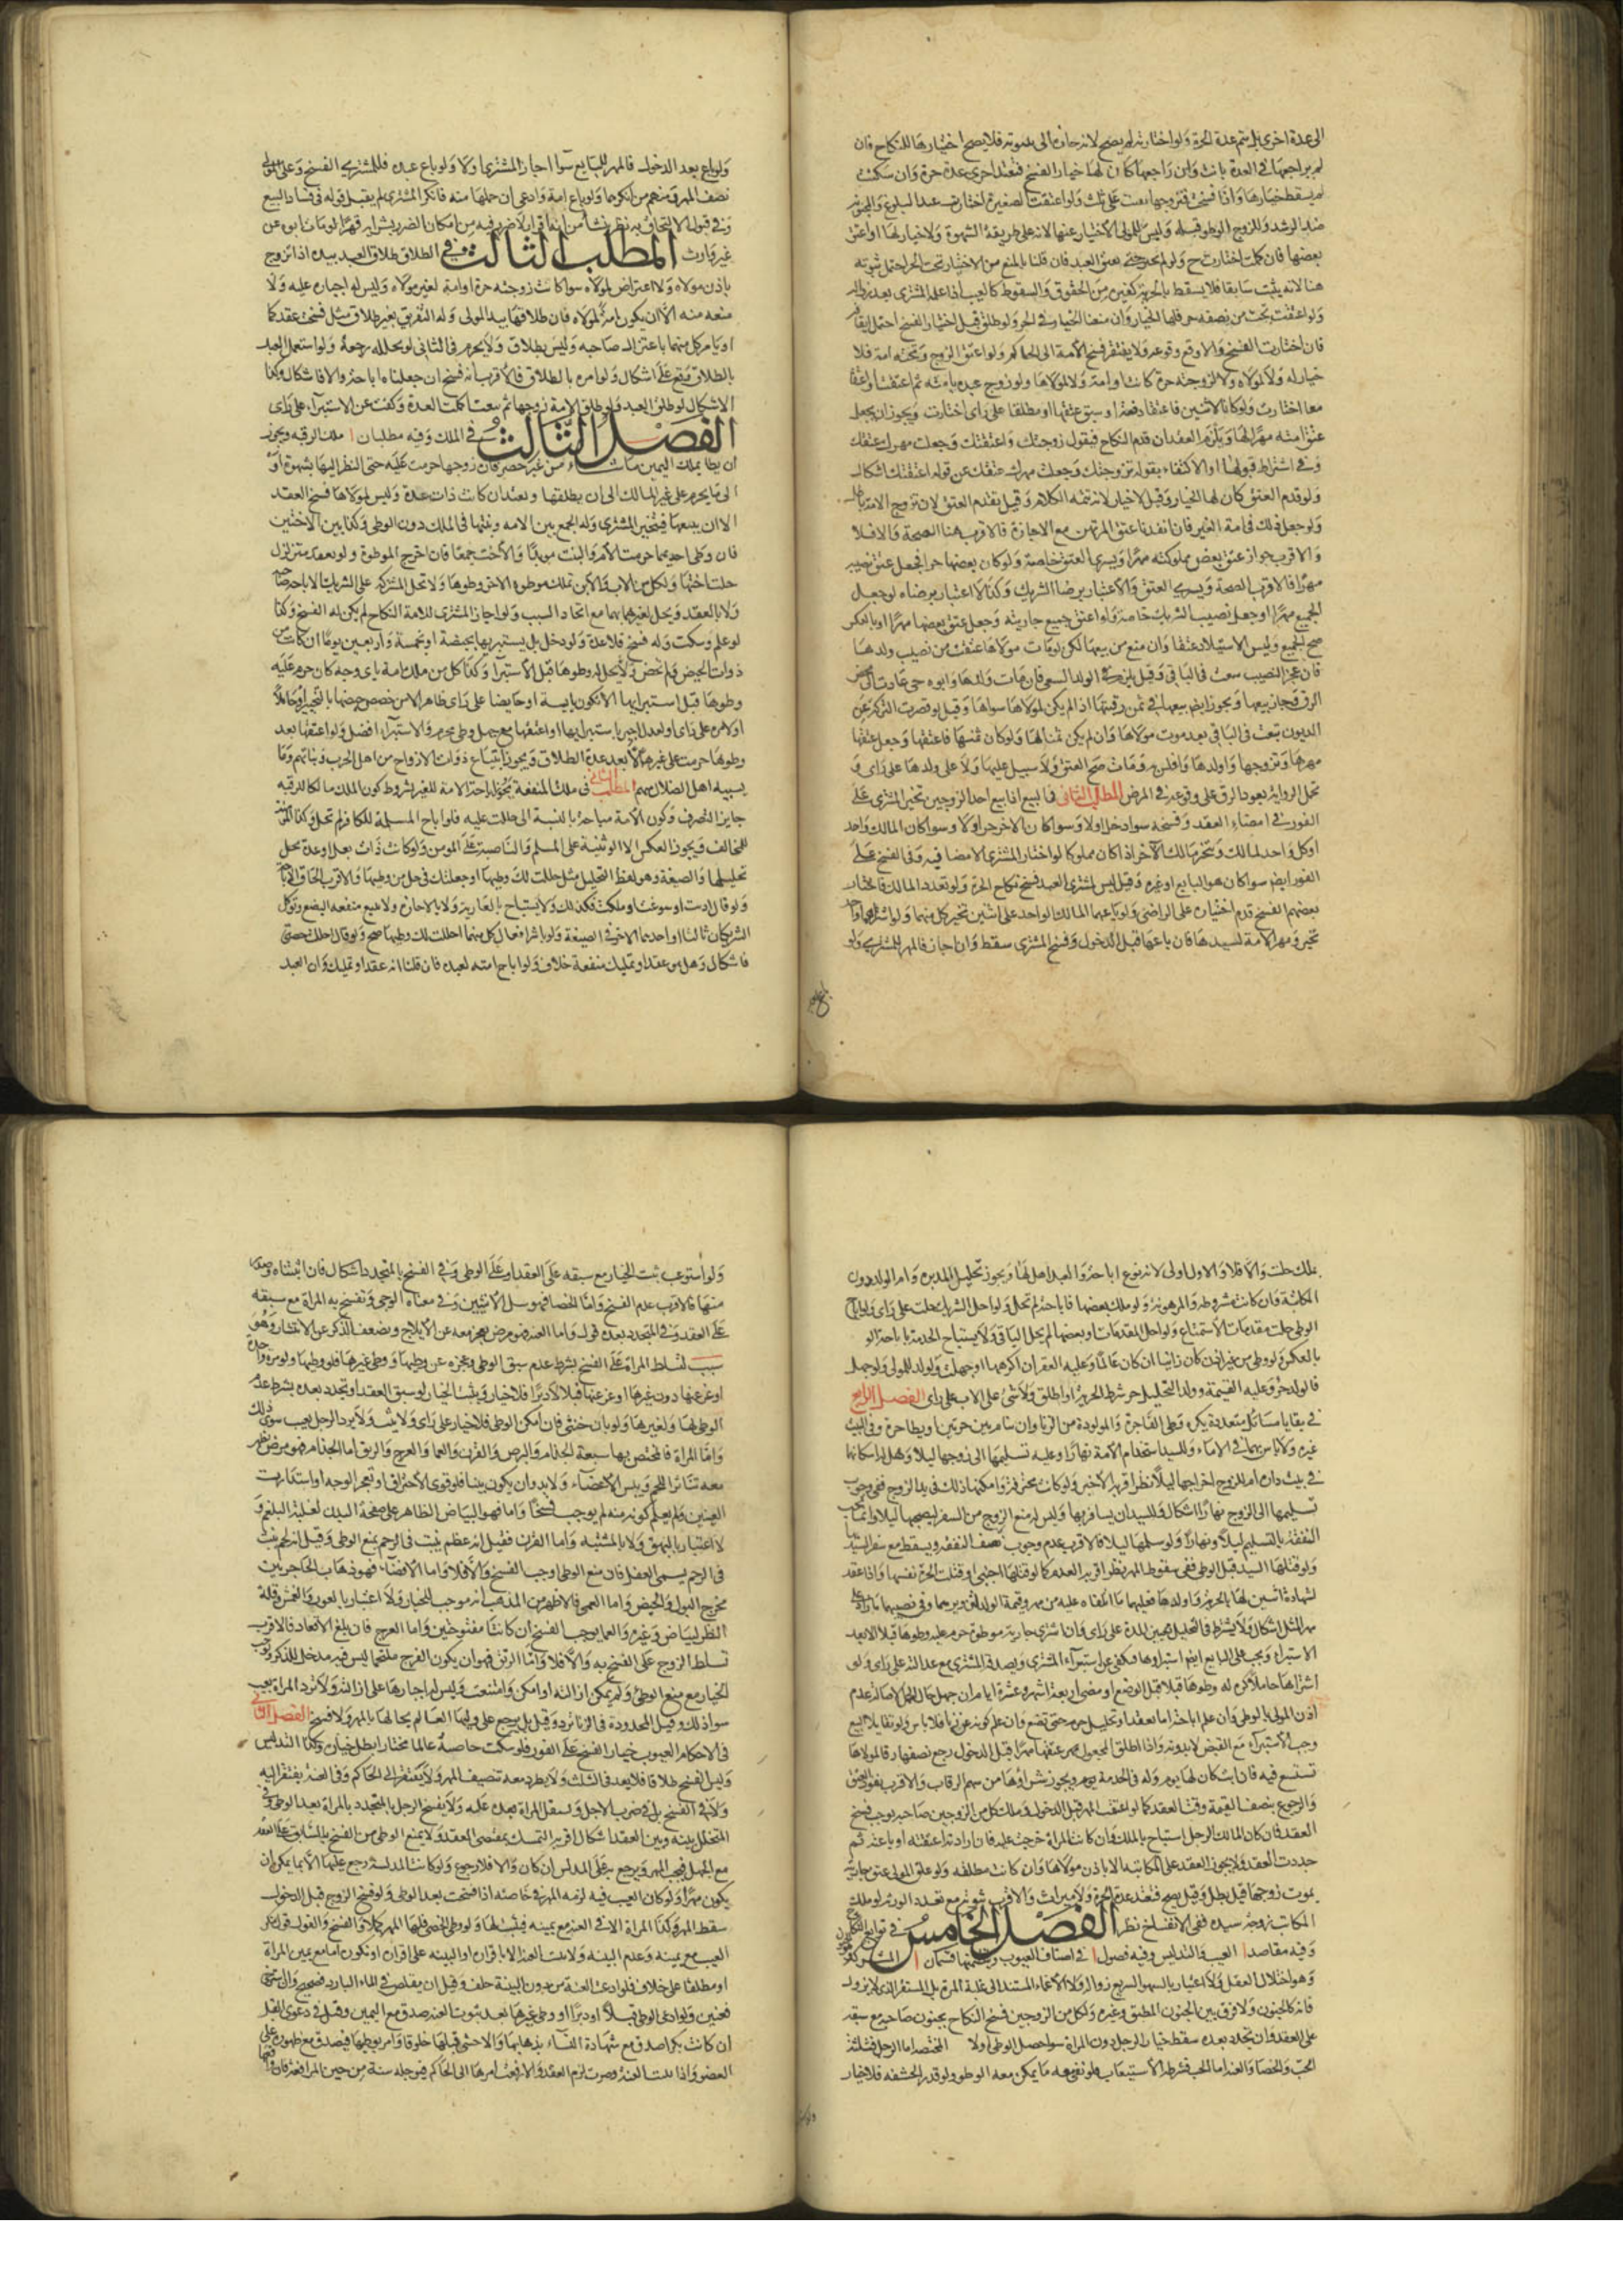 الى عدة اخرى بل تتم عدة الحرة ولو اختارته لم يصح لانه جار الى بينونة فلا يصح اختيارها للنكاح فان
لم يراجعها في العدة بانت وان راجعها كان لها خيار الفسخ فتعتد اخرى عدة حرة وان سكتت
لم يسقط خيارها واذا فسخت فتزوجها بقيت على ثلث ولو اعتقت الصغيرة اختارت عند البلوغ والمجنونة
عند الرشد وللزوج الوطو قبله وليس للمولى الاختيار عنها لانه على طريقة الشهوة ولا خيار لها لو اعتق
بعضها فان كملت اختارت ح ولو لم تختر حتى يعتق العبد فان قلنا بالمنع من الاختيار تحت الحر احتمل ثبوته
هنا لانه يثبت سابقا فلا يسقط بالحرية كغيره من الحقوق والسقوط كالعيب اذا علمه المشتري بعد زواله
ولو اعتقت تحت من نصفه حر فلها الخيار وان منعنا الخيار في الحر ولو طلق قبل اختيار الفسخ احتمل ايقافه
فان اختارت الفسخ والا وقع وقوعه ولا يفتقر فسخ الامة الى الحاكم ولو اعتق الزوج وتحته امة فلا
خيار له ولا لمولاه ولا لزوجته حرة كانت او امة ولا لمولاها ولو زوج عبده بامته ثم اعتقت او اعتقا
معا اختارت ولو كانا لاثنين فاعتقا دفعة او سبق عتقها او مطلقا على راى اختارت ويجوز ان يجعل
عتق امته مهرا لها ويلزم العقد ان قدم النكاح فيقول تزوجتك واعتقتك وجعلت مهرك عتقك
وفي اشتراط قبولها او الاكتفاء بقوله تزوجتك وجعلت مهرك عتقك عن قوله اعتقتك اشكال
ولو قدم العتق كان لها الخيار وقيل لا خيار لانه تتمة الكلام وقيل يقدم العتق لان تزوج الامة باطل
ولو جعل ذلك في امة الغير فان انفذنا عتق المرتهن مع الاجازة فالاقرب هنا الصحة والا فلا
والاقرب جواز عتق بعض مملوكته مهرا ويسري العتق خاصة ولو كان بعضها حرا فجعل عتق نصيبه
مهرا فالاقرب الصحة ويسري العتق ولا اعتبار برضا الشريك وكذا لا اعتبار برضاه لو جعل
الجميع مهرا او جعل نصيب الشريك خاصة ولو اعتق جميع جاريته وجعل عتق بعضها مهرا او بالعكس
صح الجميع وليس الاستيلاد عتقا وان منع من بيعها لكن لو مات مولاها عتقت من نصيب ولدها
فان عجز النصيب سعت في الباقي وقيل يلزم في الولد السعي فان مات ولدها وابوه حي عادت الى محض
الرق وجاز بيعها ويجوز ايضا بيعها في ثمن رقبتها اذا لم يكن لمولاها سواها وقيل لو قصرت التركة عن
الديون بيعت في الباقي بعد موت مولاها وان لم يكن ثمنا لها ولو كان ثمنها فاعتقها وجعل عتقها
مهرها وتزوجها واولدها وافلس به ومات صح العتق ولا سبيل عليها ولا على ولدها على راى و
تحمل الرواية بعود الرق على وقوعه في المرض المطلب الثاني في البيع اذا بيع احد الزوجين تخير المشتري على
الفور في امضاء العقد وفسخه سواء دخل او لا وسوا كان الاخر حرا او لا وسوا كان المالك واحد
او كل واحد لمالك ويتخير مالك الاخر اذا كان مملوكا لو اختار المشتري الامضا فيه وفي الفسخ على
الفور ايضا سوا كان هو البايع او غيره وقيل ليس لمشتري العبد فسخ نكاح الحرة ولو تعدد المالك فاختار
بعضهم الفسخ قدم اختياره على الراضي ولو باعهما المالك الواحد على اثنين تخير كل منهما ولو اشتراهما واحد
تخير ومهر الامة لسيدها فان باعها قبل الدخول وفسخ المشتري سقط وان اجاز فالمهر للمشتري ولو
ولو باع بعد الدخول فالمهر للبايع سوا اجاز المشتري او لا ولو باع عبده فللمشتري الفسخ وعلى المولى
نصف المهر ومنهم من انكرهما ولو باع امة وادعى ان حملها منه فانكر المشتري لم يقبل قوله في فساد البيع
وفي قبول الالتحاق به نظر ينشا من انه اقرار لا ضرر فيه ومن امكان الضرر بشرايه قهرا لو مات ابوه عن
غير وارث المطلب الثالث في الطلاق طلاق العبد بيده اذا تزوج
باذن مولاه ولا اعتراض لمولاه سوا كانت زوجته حرة او امة لغير مولاه وليس له اجباره عليه ولا
منعه منه الا ان يكون امة لمولاه فان طلاقها بيد المولى وله التفريق بغير طلاق مثل فسخت عقدكما
او يامر كل منهما باعتزال صاحبه وليس بطلاق ولا يحرم في الثاني لو تخلله رجعة ولو استعمل العبد
بالطلاق وقع على اشكال ولو امره بالطلاق فالاقرب انه فسخ ان جعلناه اباحة والا فاشكال وكذا
الاشكال لو طلق العبد ولو طلق الامة زوجها ثم بيعت اكملت العدة وكفت عن الاستبراء على راى
الفصل الثالث في الملك وفيه مطلبان ا ملك الرقبة ويجوز
ان يطا بملك اليمين ما شاء من غير حصر فان زوجها حرمت عليه حتى النظر اليها بشهوة او
الى ما يحرم على غير المالك الى ان يطلقها وتعتد ان كانت ذات عدة وليس لمولاها فسخ العقد
الا ان يبيعها فيتخير المشتري وله الجمع بين الامه وبنتها في الملك دون الوطى وكذا بين الاختين
فان وطى احديهما حرمت الام والبنت موبدا والاخت جمعا فان اخرج الموطوة ولو بعقد متزلزل
حلت اختها ولكل من الاب والابن تملك موطوءة الاخر وطوها ولا تحل المشتركة على الشريك الا باباحة صاحبه
ولا بالعقد ويحل لغيرهما بهما مع اتحاد السبب ولو اجاز المشتري للامة النكاح لم يكن له الفسخ وكذا
لو علم وسكت وله فسخه فلا عدة ولو دخل بل يستبريها بحيضة او بخمسة واربعين يوما ان كانت من
ذوات الحيض ولم تحض ولا يحل له وطوها قبل الاستبرا وكذا كل من ملك امة باى وجه كان حرم عليه
وطوها قبل استبرايها الا ان تكون يايسة او حايضا على راى
وطوها حرمت على غيره الا بعد عدة الطلاق ويجوز ابتياع ذوات الازواج من اهل الحرب وبناتهم وما
يسبيه اهل الضلال منهم المطلب الثاني في ملك المنفعة يجوز اباحة الامة للغير بشروط كون المالك مالكا للرقبه
جايز التصرف وكون الامة مباحة بالنسبة الى من حللت عليه فلو اباح المسلمة للكافر لم تحل وكذا المؤمنة
للمخالف ويجوز العكس الا الوثنية على المسلم والناصبة على المومن ولو كانت ذات بعل او عدة لم تحل
تحليلها والصيغة وهو لفظ التحليل مثل حللت لك وطيها او جعلتك في حل من وطيها والاقرب الحاق الاباحة
ولو قال اذنت او سوغت او ملكت فكذلك ولا يستباح بالعارية ولا بالاجارة ولا ببيع منفعة البضع ولو وكل
الشريكان ثالثا او احدهما الاخر في الصيغة ولو باشراه فقال كل منهما احللت لك وطيها صح ولو قال احللت حصتي
فاشكال وهل هو عقد او تمليك منفعة خلاف ولو اباح امته لعبده فان قلنا انه عقد او تمليك وان العبد
يملك حلت والا فلا والاول اولى لانه نوع اباحة والعبد اهل لها ويجوز تحليل المدبرة وام الولد دون
المكاتبة وان كانت مشروطة والمرهونة ولو ملك بعضها فاباحته لم تحل ولو احل الشريك حلت على راى ولو اباح
الوطى حلت مقدمات الاستمتاع ولو احل المقدمات او بعضها لم يحل الباقي ولا يستباح الخدمة باباحة الوطى
بالعكس ولو وطى من غير اذن كان زانيا ان كان عالما وعليه العقر ان اكرهها او جهلت والولد للمولى ولو جهل
فالولد حر وعليه القيمة وولد التحليل حر شرط الحرية او اطلق ولا شى على الاب على راى الفصل الرابع
في بقايا مسائل متعددة يكره وطى الفاجرة والمولودة من الزنا وان ينام بين حرتين او يطا حرة وفي البيت
غيره ولا باس بهما في الاماء وللسيد استخدام الامة نهارا وعليه تسليمها الى زوجها ليلا وهل له اسكانها
في بيت داره ام للزوج اخراجها ليلا نظر اقربه الاخير ولو كانت محترفة وامكنها ذلك في يد الزوج ففي وجوب
تسليمها الى الزوج نهارا اشكال وللسيد ان يسافر بها وليس له منع الزوج من السفر ليصحبها ليلا وانما تجب
النفقة بالتسليم ليلا ونهارا ولو سلمها ليلا فالاقرب عدم وجوب نصف النفقة ويسقط مع سفر السيد
ولو قتلها السيد قبل الوطى ففي سقوط المهر نظر اقربه العدم كما لو قتلها اجنبي او قتلت الحرة نفسها
لشهادة اثنين لها بالحرية واولدها فعليهما ما اتلفاه عليه من مهر وقيمة الولد
مهر المثل اشكال ولا يشترط في التحليل تعيين المدة على راى وان اشترى جارية موطوءة حرم عليه وطوها قبلا الا بعد
الاستبراء ويجب على البايع ايضا استبراوها فيكفي عن استبراء المشتري ويصدقه المشتري مع عدالته على راى ولو
اشتراها حاملا كره له وطوها قبلا قبل الوضع او مضي اربعة اشهر وعشرة ايام ان جهل حال الحمل لاصالة عدم
اذن المولى بالوطى وان علم اباحته اما بعقد او تحليل حرم حتى تضع وان علم كونه عن زنا فلا باس ولو تقايلا البيع
وجب الاستبراء مع القبض لا بدونه واذا اطلق المجعول مهر عتقها مهرا قبل الدخول رجع نصفها رقا لمولاها
تستسعى فيه فان ابت كان لها يوم وله في الخدمة يوم ويجوز شراوها من سهم الرقاب والاقرب نفوذ العتق
والرجوع بنصف القيمة وقت العقد كما لو اعتقت المهر قبل الدخول وملك كل من الزوجين صاحبه يوجب فسخ
العقد فان كان المالك الرجل استباح بالملك وان كانت المراة حرمت عليه فان ارادته اعتقته او باعته ثم
جددت العقد ولا يجوز العقد على المكاتبة الا باذن مولاها وان كانت مطلقه ولو علق المولى عتق جاريته
بموت زوجها قيل يبطل وقيل يصح فتعتد عدة الحرة ولا ميراث والاقرب ثبوته مع تعدد الورثة ولو ملك
المكاتب زوجة سيده ففي الانفساخ نظر الفصل الخامس في توابع النكاح
وفيه مقاصد ا العيب والتدليس وفيه فصول ا في اصناف العيوب وينظمها قسمان ا المشتركة
وهو اختلال العقل ولا اعتبار بالسهو السريع زواله ولا الاغماء المستند الى غلبة المرة بل المستقر الذي لا يزول
فانه كالجنون ولا فرق بين الجنون المطبق وغيره ولكل من الزوجين فسخ النكاح بجنون صاحبه مع سبقه
على العقد وان تجدد بعده سقط خيار الرجل دون المراة سوا حصل الوطى او لا المختصة اما الرجل فثلثة
الجب والخصا والعنة اما الجب فشرطه الاستيعاب فلو بقي معه ما يمكن معه الوطو ولو قدر الحشفه فلا خيار
ولو استوعب ثبت الخيار مع سبقه على العقد او على الوطى وفي الفسخ بالمتجدد اشكال فان اثبتناه وصدر
منها فالاقرب عدم الفسخ واما الخصا فهو سل الانثيين وفي معناه الوجى وتفسخ به المراة مع سبقه
على العقد وفي المتجدد بعده قول واما العنة فهو مرض يعجز معه عن الايلاج ويضعف الذكر عن الانتشار وهو
سبب لتسلط المراة على الفسخ بشرط عدم سبق الوطى وعجزه عن وطيها ووطى غيرها فلو وطيها ولو مرة واحدة
او عن عنها دون غيرها او عن عنها قبلا لا دبرا فلا خيار ويثبت الخيار لو سبق العقد او تجدد بعده بشرط عدم
الوطى لها ولغيرها ولو بان خنثى فان امكن الوطى فلا خيار على راى ولا يرد الرجل بعيب سوى ذلك
واما المراة فالمختص بها سبعة الجذام والبرص والقرن والعما والعرج والرتق اما الجذام فهو مرض يظهر
معه تناثر اللحم ويبس الاعضاء ولا بد وان يكون بينا فلو قوي الاحتراق او تعجر الوجه او استدارت
العينين ولم يعلم كونه منه لم يوجب فسخا واما فهو البياض الظاهر على صفحة البدن لغلبة البلغم و
لا اعتبار بالبهق ولا بالمشتبه واما القرن فقيل انه عظم ينبت في الرحم يمنع الوطى وقيل انه لحم ينبت
في الرحم يسمى العفل فان منع الوطى اوجب الفسخ والا فلا واما الافضاء فهو ذهاب الحاجز بين
مخرج البول والحيض واما العمى فالاظهر من المذهب انه موجب للخيار ولا اعتبار بالعور والعمش وقلة
النظر لبياض وغيره والعما يوجب الفسخ وان كانتا مفتوحتين واما العرج فان بلغ الاقعاد فالاقرب
تسلط الزوج على الفسخ به والا فلا واما الرتق فهو ان يكون الفرج ملتحما ليس فيه مدخل للذكر
الخيار مع منع الوطى ولم يمكن ازالته او امكن وامتنعت وليس له اجبارها على ازالته ولا ترد المراة بعيب
سوا ذلك وقيل المحدودة في الزنا ترد وقيل بل يرجع على وليها العالم بحالها بالمهر ولا فسخ الفصل الثاني
في الاحكام العيوب خيار الفسخ على الفور فلو سكت صاحبه عالما مختارا بطل خياره وكذا التدليس
وليس الفسخ طلاقا فلا يعد في الثلث ولا يطرد معه تنصيف المهر ولا يفتقر الى الحاكم وفي العنة يفتقر اليه
لا في الفسخ بل في ضرب الاجل وتستقل المراة بعده عليه ولا يفسخ الرجل بالمتجدد بالمراة بعد الوطى وفي
المتخلل بينه وبين العقد اشكال اقربه التمسك بمقتضى العقد ولا يمنع الوطى من الفسخ بالسابق على العقد
مع الجهل فيجب المهر ويرجع به على المدلس ان كان والا فلا رجوع ولو كانت المدلسة رجع عليها الا بما يمكن ان
يكون مهرا ولو كان العيب فيه لزمه المهر في خاصته اذا فسخت بعد الوطى ولو فسخ الزوج قبل الدخول
سقط المهر وكذا المراة الا في العنة
العيب مع يمينه وعدم البينة ولا تثبت العنة الا باقراره او البينة على اقراره او نكوله اما مع يمين المراة
او مطلقا على خلاف فلو ادعت العنة من دون البينة حلف وقيل ان يقلص في الماء البارد فصحيح وان استرخى
فعنين ولو ادعى الوطى قبلا او دبرا او وطى غيرها بعد ثبوت العنة صدق مع اليمين وقيل في دعوى القبل
ان كانت بكرا صدق مع شهادة النساء بذهابها والا حشي قبلها خلوقا وامر بوطيها فيصدق مع ظهوره على
العضو واذا ثبتت العنة وصبرت لزم العقد والا رفعت امرها الى الحاكم فيوجله سنة من حين المرافعة فان